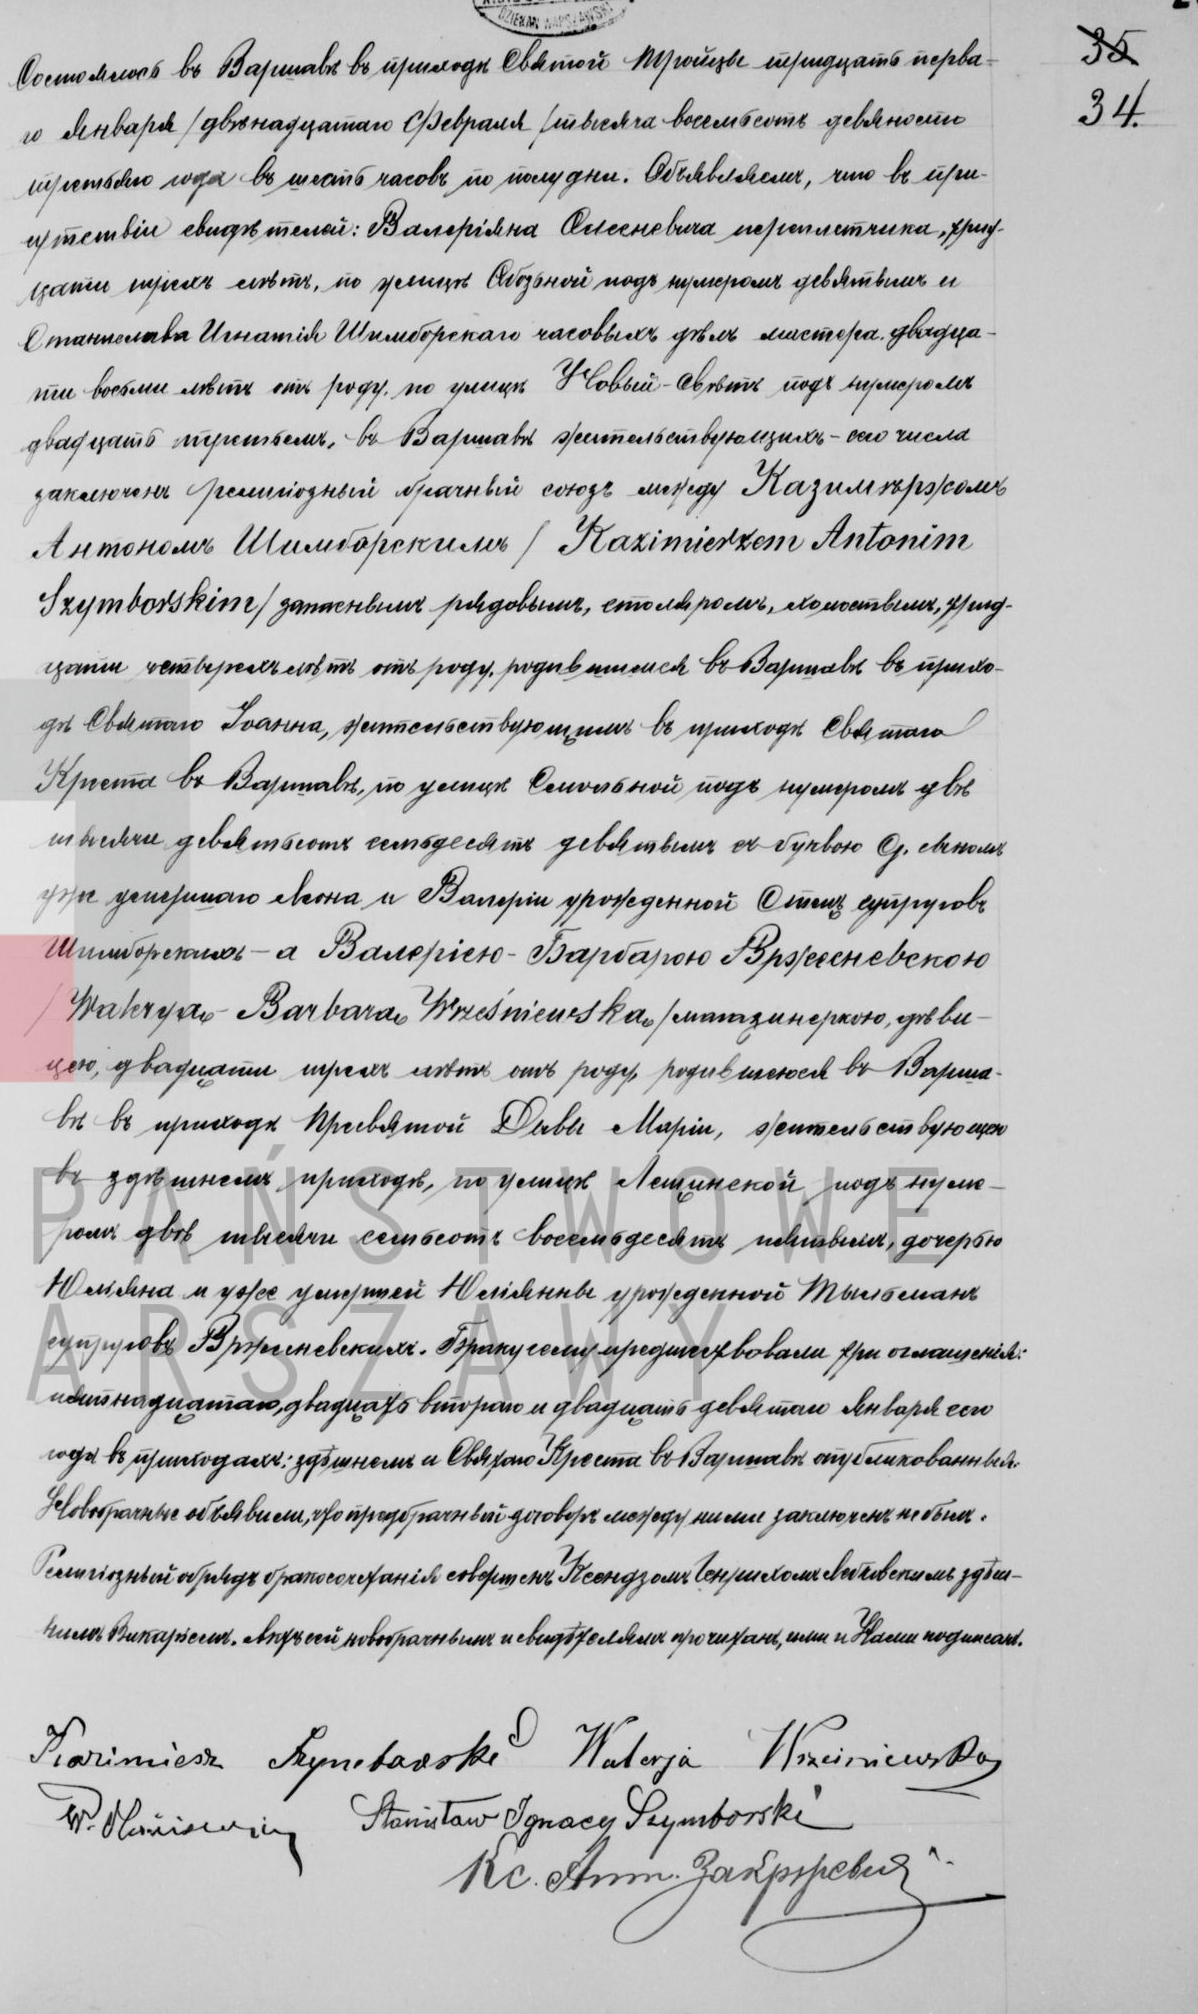 DZIEKAN WARSZAWSKI
35
34.
Состоялось въ Варшавѣ въ приходѣ Святой Тройцы тридцать перва-
го Января /двѣнадцатаго Февраля/ тысяча восемьсотъ девяносто
третьяго года въ шесть часовъ по полудни. Объявляемъ, что въ при-
сутствіи свидѣтелей: Валеріяна переплетчика, трид-
цати трехъ лѣтъ, по улицѣ Обозьной подъ нумеромъ девятымъ и
Станислава Игнатія Шимборскаго часовыхъ дѣлъ мастера, двадца-
ти восьми лѣтъ отъ роду, по улицѣ Новый-Свѣтъ подъ нумеромъ
двадцать третьемъ, въ Варшавѣ жительствующихъ - сего числа
заключенъ религіозный брачный союзъ между Казимѣржомъ
Антономъ Шимборскимъ / Kazimierzem Antonim
Szymborskim/ запаснымъ рядовымъ, столяромъ, холостымъ, трид-
цати четверехъ лѣтъ отъ роду, родившимся въ Варшавѣ въ прихо-
дѣ Святаго Іоанна, жительствующимъ въ приходѣ Святаго
Креста въ Варшавѣ, по улицѣ Смольной подъ нумеромъ двѣ
тысячи девятьсотъ семьдесятъ девятымъ съ буквою сыномъ
уже умершаго Леона и Валеріи урожденной супруговъ
Шимборскихъ - а Валеріею - Барбарою Вржесневскою
/Waleryą - Barbarą Wrześniewską/ магазинеркою, дѣви-
цею, двадцати трехъ лѣтъ отъ роду, родившеюся въ Варша-
вѣ въ приходѣ Пресвятой Дѣвы Маріи, жительствующею
въ здѣшнемъ приходѣ, по улицѣ Лещинской подъ нуме-
ромъ двѣ тысячи семьсотъ восемьдесятъ пятымъ, дочерью
Юліяна и уже умершей Юліянны урожденной Тыльманъ
супруговъ Вржесневскихъ. Браку сему предшествовали три оглашенія:
пятнадцатаго, двадцать втораго и двадцать девятаго Января сего
года въ приходахъ: здѣшнемъ и Святаго Креста въ Варшавѣ опубликованныя.
Новобрачные объявили, что предбрачный договоръ между ними заключенъ не былъ.
Религіозный обрядъ бракосочетанія совершенъ Ксендзомъ Генрихомъ здѣш-
нимъ Викаріемъ. Актъ сей новобрачнымъ и свидѣтелямъ прочитанъ, ими и Нами подписанъ.
Kazimierz Szymborski Walerja Wrześniewska
W. Stanisław Ignacy Szymborski
Кс. Ант. Закржевскій
PAŃSTWOWE
ARSZAWY